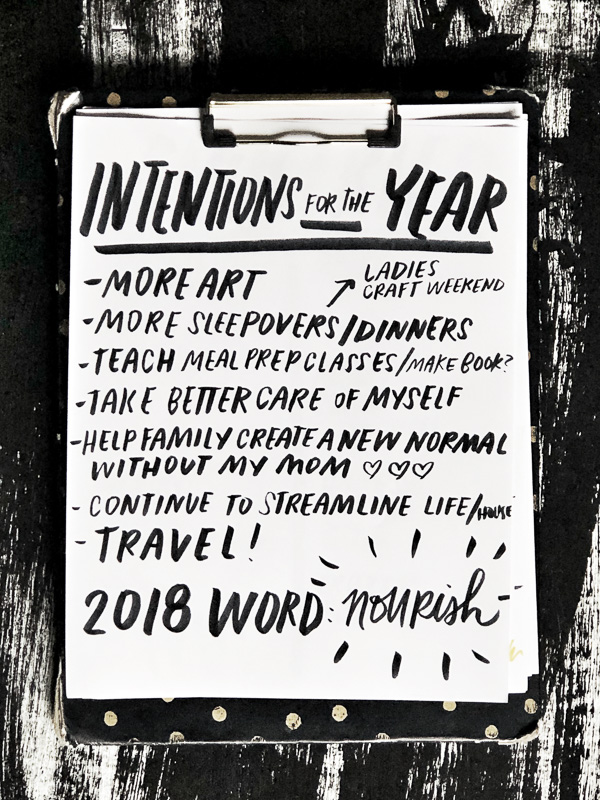 INTENTIONS FOR THE YEAR
- MORE ART
LADIES
CRAFT WEEKEND
- MORE SLEEPOVERS/DINNERS
- TEACH MEAL PREP CLASSES/MAKE BOOK?
- TAKE BETTER CARE OF MYSELF
- HELP FAMILY CREATE A NEW NORMAL
WITHOUT MY MOM ♡♡♡
- CONTINUE TO STREAMLINE LIFE/HOUSE
- TRAVEL!
2018 WORD: nourish